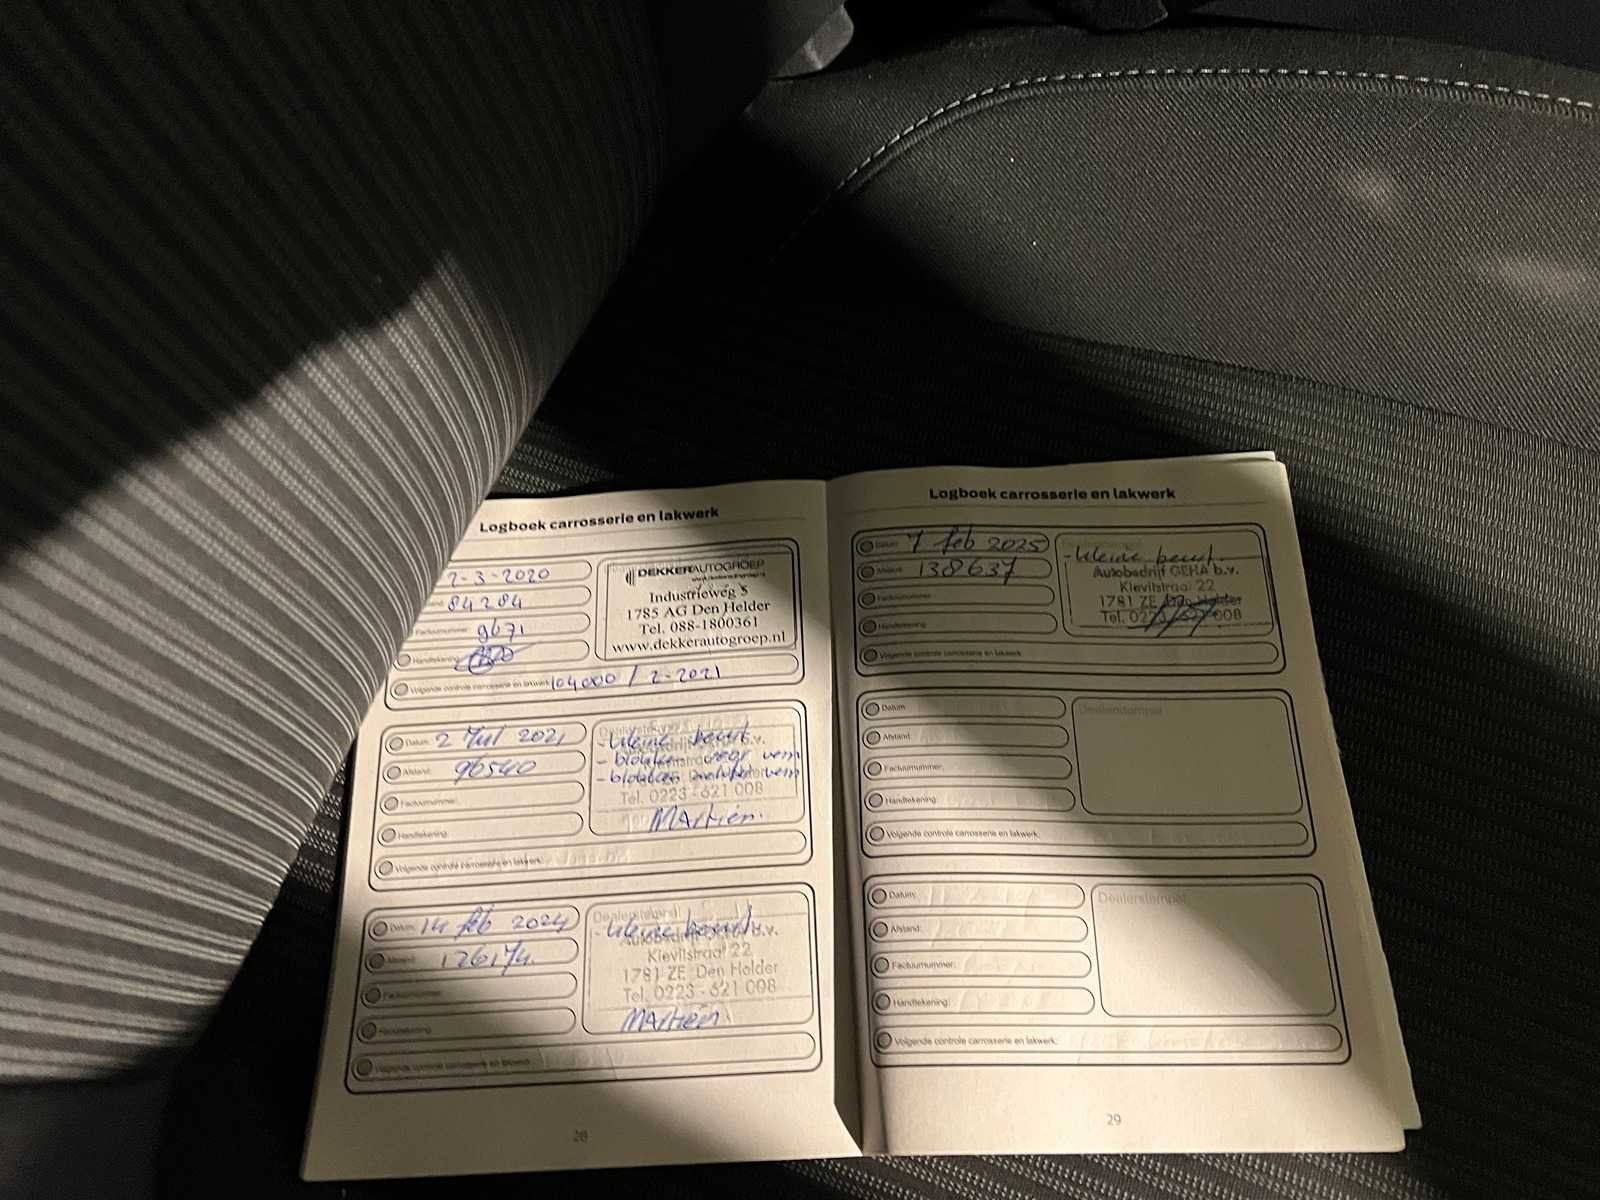 Logboek carrosserie en lakwerk
2-3-2020
84284
Factuurnummer: 9671
Handtekening:
Volgende controle carrosserie en lakwerk: 104000 / 2-2021
DEKKERAUTOGROEP
www.dekkerautogroep.nl
Industrieweg 5
1785 AG Den Helder
Tel. 088-1800361
www.dekkerautogroep.nl
Datum: 2 Jul 2021
Afstand: 96540
Factuurnummer:
Handtekening:
Volgende controle carrosserie en lakwerk:
Dealerstempel
- kleine beurt
Tel. 0223 - 621 008
Martien.
Datum: 14 feb 2024
Afstand: 126174
Factuurnummer:
Handtekening:
Volgende controle carrosserie en lakwerk:
Dealerstempel
- kleine beurt.
Autobedrijf b.v.
Kievitstraat 22
1781 ZE Den Helder
Tel. 0223 - 621 008
Martien
28
Logboek carrosserie en lakwerk
Datum: 7 feb 2025
Afstand: 138637
Factuurnummer:
Handtekening:
Volgende controle carrosserie en lakwerk:
- kleine beurt.
Autobedrijf GEHA b.v.
Kievitstraat 22
1781 ZE Den Helder
Tel. 008
Datum:
Afstand:
Factuurnummer:
Handtekening:
Volgende controle carrosserie en lakwerk:
Dealerstempel
Datum:
Afstand:
Factuurnummer:
Handtekening:
Volgende controle carrosserie en lakwerk:
Dealerstempel
29